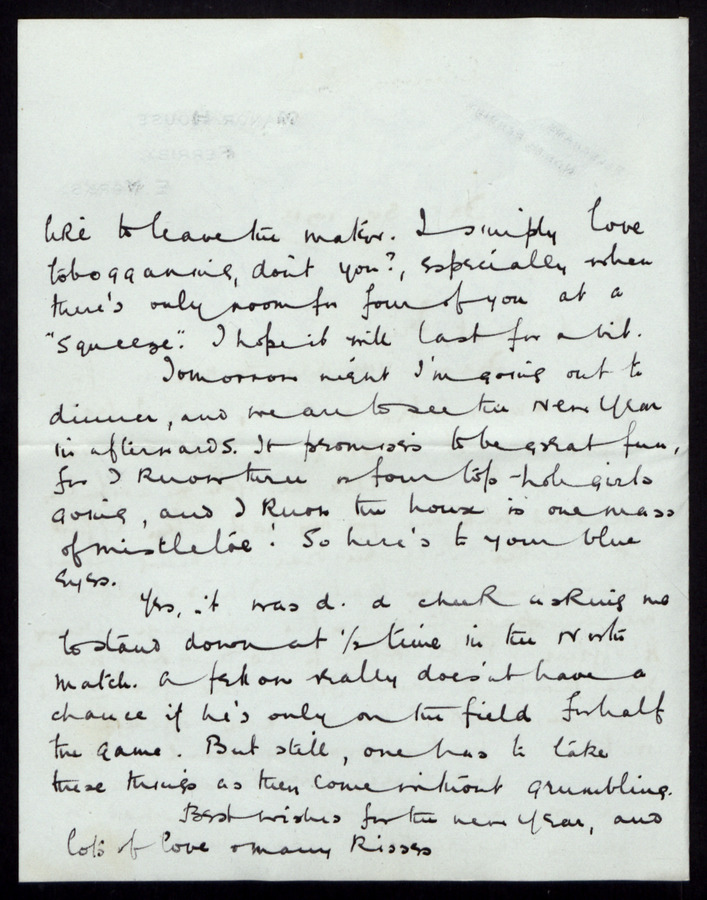 like to leave the matter. I simply love
tobogganning, don't you?, especially when
there's only room for four of you at a
"squeeze". I hope it will last for a bit.
Tomorrow night I'm going out to
dinner, and we are to see the New Year
in afterwards. It promises to be great fun,
for I know there is four top-hole girls
going, and I know the house is one mass
of mistletoe! So here's to your blue
eyes.
Yes, it was d. d cheek asking me
to stand down at ½ time in the North
match. A fellow really doesn't have a
chance if he's only on the field for half
the game. But still, one has to take
these things as they come without grumbling.
Best wishes for the new year, and
lots of love & many kisses